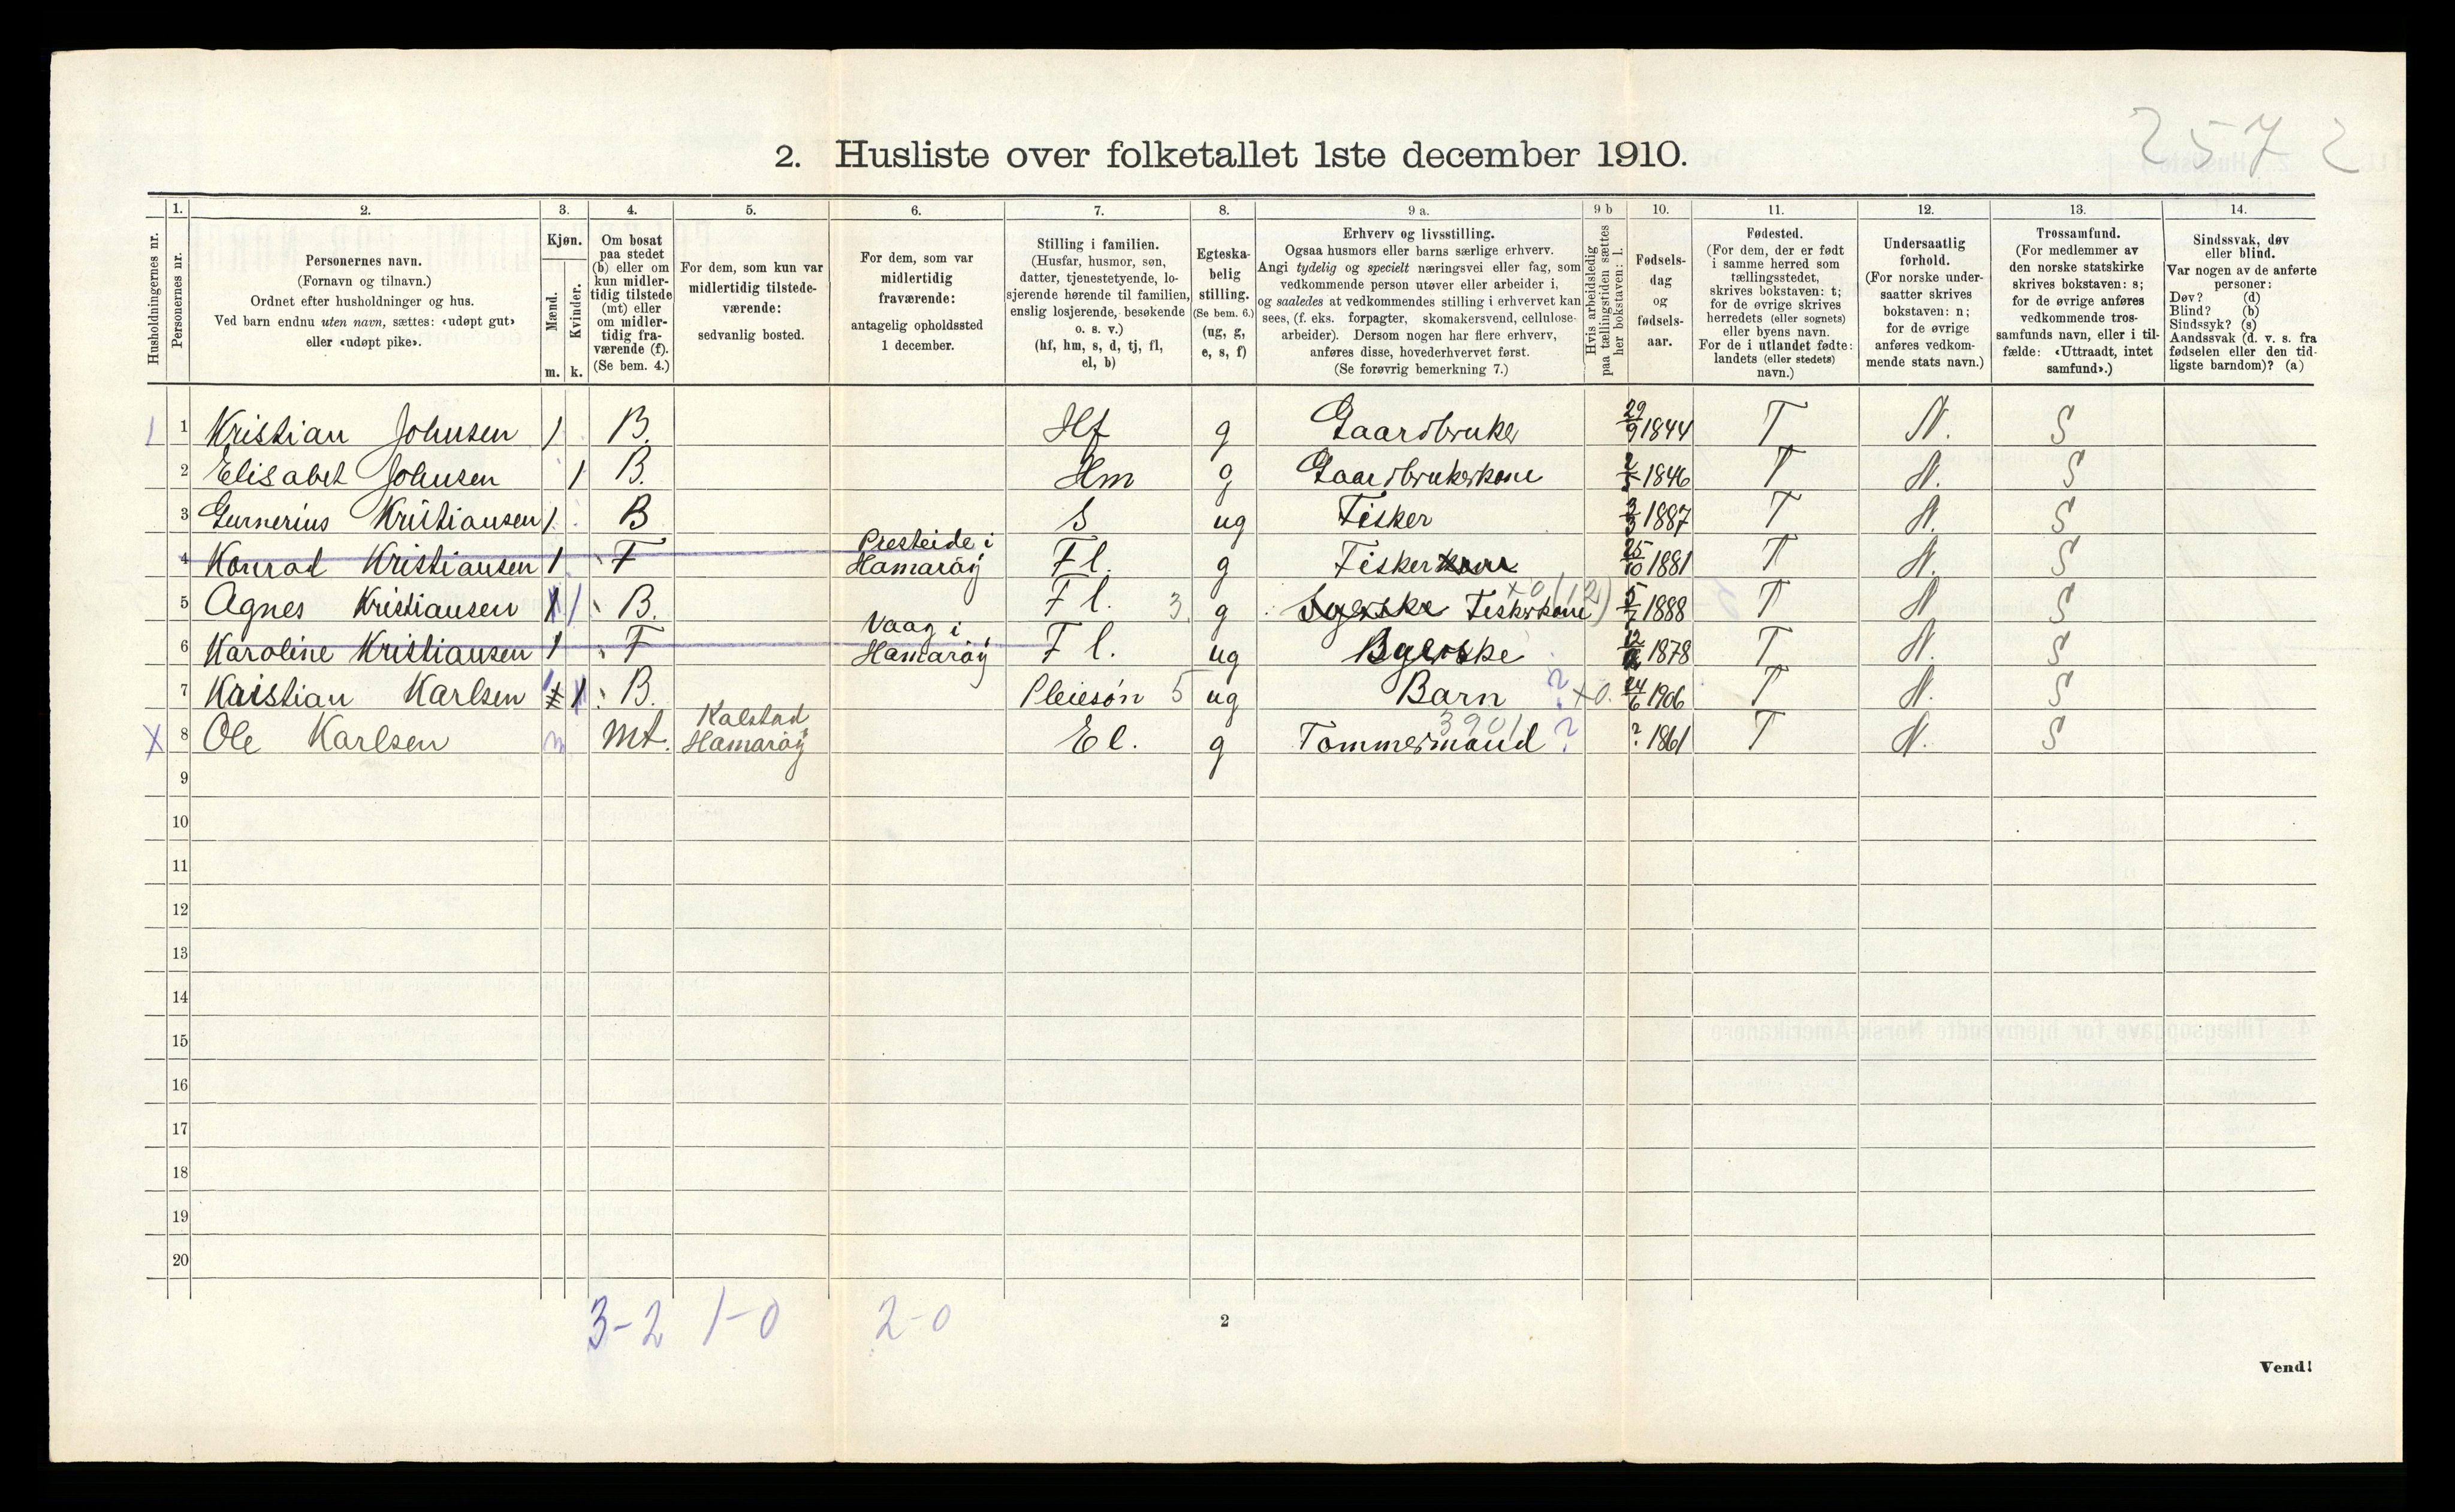 2572
2. Husliste over folketallet 1ste december 1910.
Husholdningernes nr.
1. Personernes nr.
2. Personernes navn.
(Fornavn og tilnavn.)
Ordnet efter husholdninger og hus.
Ved barn endnu uten navn, sættes: «udøpt gut»
eller «udøpt pike».
3. Kjøn.
Mænd. m.
Kvinder. k.
4. Om bosat
paa stedet
(b) eller om
kun midler-
tidig tilstede
(mt) eller
om midler-
tidig fra-
værende (f).
(Se bem. 4.)
5. For dem, som kun var
midlertidig tilstede-
værende:
sedvanlig bosted.
6. For dem, som var
midlertidig
fraværende:
antagelig opholdssted
1 december.
7. Stilling i familien.
(Husfar, husmor, søn,
datter, tjenestetyende, lo-
sjerende hørende til familien,
enslig losjerende, besøkende
o. s. v.)
(hf, hm, s, d, tj, fl,
el, b)
8. Egteska-
belig
stilling.
(Se bem. 6.)
(ug, g,
e, s, f)
9 a. Erhverv og livsstilling.
Ogsaa husmors eller barns særlige erhverv.
Angi tydelig og specielt næringsvei eller fag, som
vedkommende person utøver eller arbeider i,
og saaledes at vedkommendes stilling i erhvervet kan
sees, (f. eks. forpagter, skomakersvend, cellulose-
arbeider). Dersom nogen har flere erhverv,
anføres disse, hovederhvervet først.
(Se forøvrig bemerkning 7.)
9 b Hvis arbeidsledig
paa tællingstiden sættes
her bokstaven: l.
10. Fødsels-
dag
og
fødsels-
aar.
11. Fødested.
(For dem, der er født
i samme herred som
tællingsstedet,
skrives bokstaven: t;
for de øvrige skrives
herredets (eller sognets)
eller byens navn.
For de i utlandet fødte:
landets (eller stedets)
navn.)
12. Undersaatlig
forhold.
(For norske under-
saatter skrives
bokstaven: n;
for de øvrige
anføres vedkom-
mende stats navn.)
13. Trossamfund.
(For medlemmer av
den norske statskirke
skrives bokstaven: s;
for de øvrige anføres
vedkommende tros-
samfunds navn, eller i til-
fælde: «Uttraadt, intet
samfund».)
14. Sindssvak, døv
eller blind.
Var nogen av de anførte
personer:
Døv? (d)
Blind? (b)
Sindssyk? (s)
Aandssvak (d. v. s. fra
fødselen eller den tid-
ligste barndom)? (a)
1 1 Kristian Johnsen 1 B. Hf g Gaardbruker 29/9 1844 T N. S
2 Elisabet Johnsen 1 B. Hm g Gaardbrukerkone 1846 T N. S
3 Gurnerius Kristiansen 1 B S ug Fisker 3/3 1887 T N. S
4 Konrad Kristiansen 1 F Presteide i Hamarøy Fl. g Fisker 25/10 1881 T N. S
5 Agnes Kristiansen 1 B. Fl. 3. g Fiskerkone 5/7 1888 T N S
6 Karoline Kristiansen 1 F Vaag i Hamarøy Fl. ug 1878 T N. S
7 Kristian Karlsen 1 B. Pleiesøn 5 ug Barn ? +0. 24/6 1906 T N. S
X 8 Ole Karlsen m Mt. Kalstad Hamarøy El. g Tømmermand 3901 ? ? 1861 T N. S
9
10
11
12
13
14
15
16
17
18
19
20
3-2 1-0 2-0
2
Vend!